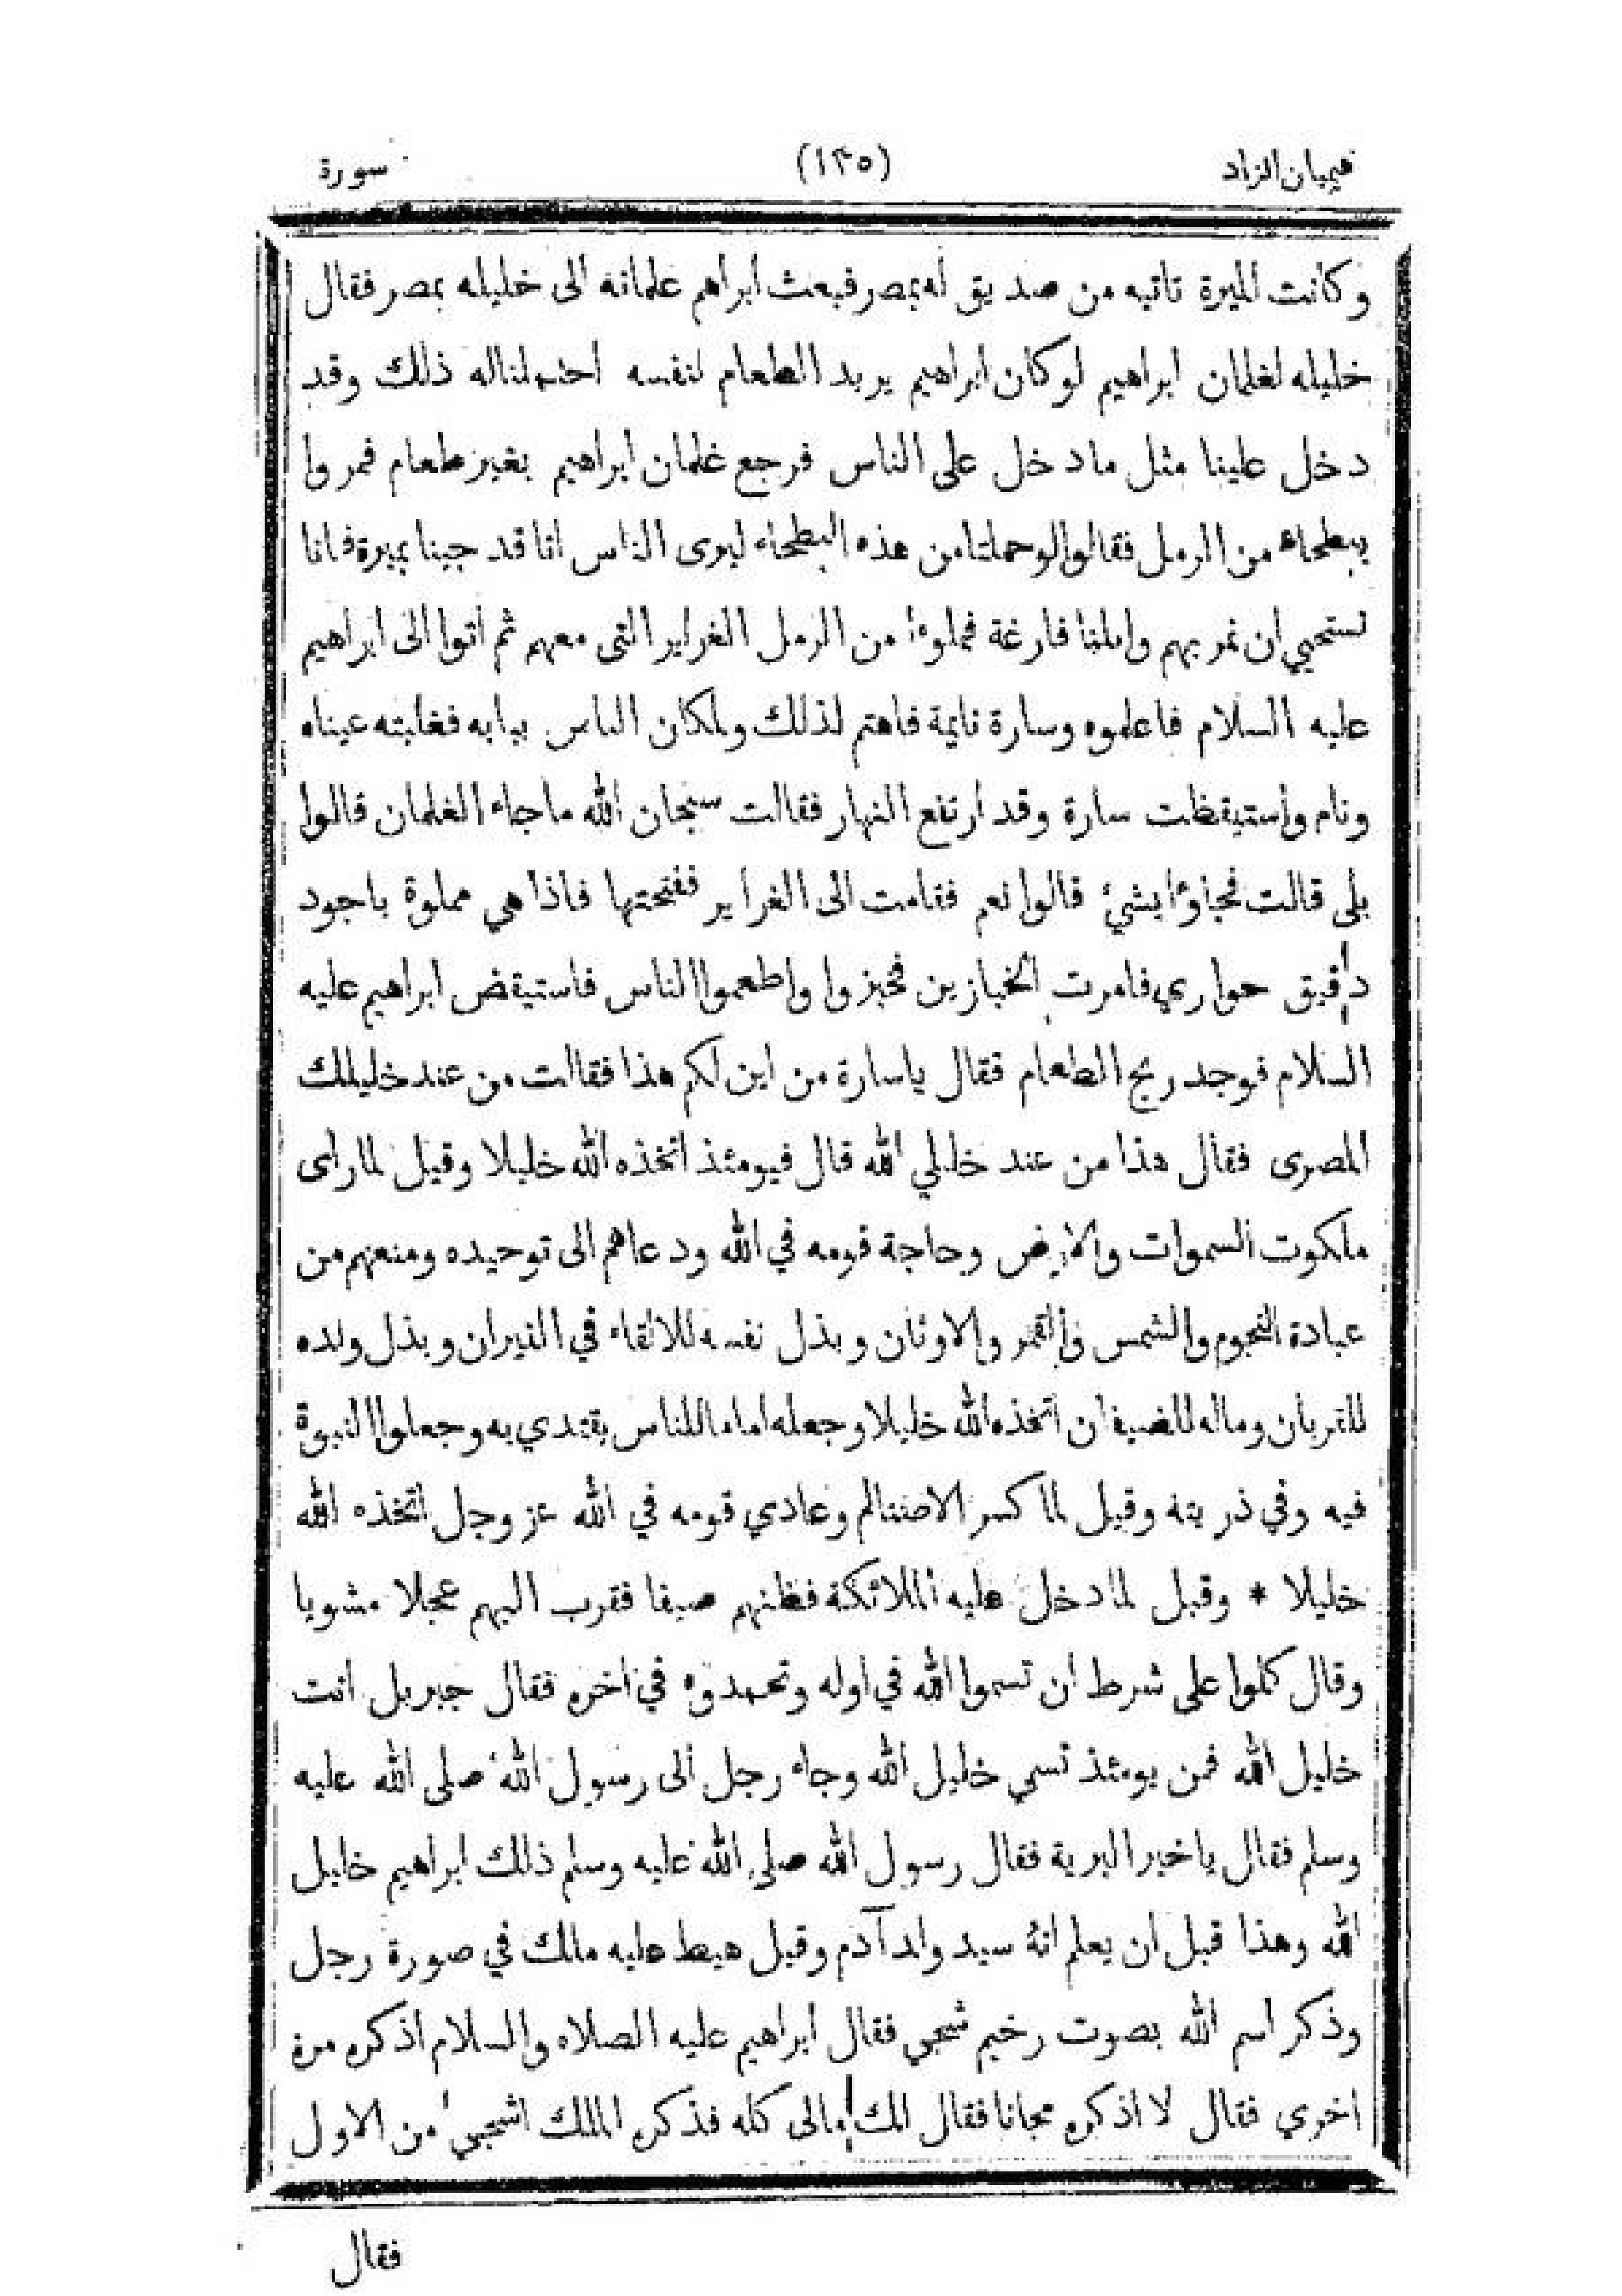 هيميان الزاد (١٣٥) سورة
وكانت الميرة تاتيه من صديق له بمصر فبعث ابراهم غلمانه الى خليله بمصر فقال
خليله لغلمان ابراهيم لوكان ابراهيم يريد الطعام لنفسه احتملناله ذلك وقد
دخل علينا مثل مادخل على الناس فرجع غلمان ابراهيم بغير طعام فمروا
ببطحاء من الرمل فقالوا لوحملنا من هذه البطحاء ليرى الناس انا قد جينا بميرة فانا
نستحيي ان نمر بهم وابلنا فارغة فملوءا من الرمل الغراير التى معهم ثم اتوا الى ابراهيم
عليه السلام فاعلموه وسارة نايمة فاهتم لذلك ولمكان الناس ببابه فغلبته عيناه
ونام واستيقظت سارة وقد ارتفع النهار فقالت سبحان الله ماجاء الغلمان قالوا
بلى قالت فجاؤا بشئ قالوا نعم فقامت الى الغراير ففتحتها فاذا هي مملوة باجود
دقيق حواري فامرت الخبازين فخبزوا واطعموا الناس فاستيقض ابراهيم عليه
السلام فوجد ريح الطعام فقال ياسارة من اين لكم هذا فقالت من عند خليلك
المصرى فقال هذا من عند خليلي الله قال فيومئذ اتخذه الله خليلا وقيل لما راى
ملكوت السموات والارض وحاجة قومه في الله ودعاهم الى توحيده ومنعهم من
عبادة النجوم والشمس والقمر والاوثان وبذل نفسه للالقاء في النيران وبذل ولده
للقربان وماله للضيفان اتخذه الله خليلا وجعله اماما للناس يقتدي به وجعلوا النبوة
فيه وفي ذريته وقيل لما كسر الاصننالم وعادي قومه في الله عز وجل اتخذه الله
خليلا * وقيل لما دخل عليه الملائكة فظنهم ضيفا فقرب اليهم عجلا مشويا
وقال كلوا على شرط ان تسموا الله في اوله وتحمدوه في اخره فقال جبريل انت
خليل الله فمن يومئذ تسمي خليل الله وجاء رجل الى رسول الله صلى الله عليه
وسلم فقال ياخير البرية فقال رسول الله صلى الله عليه وسلم ذلك ابراهيم خليل
الله وهذا قبل ان يعلم انه سيد ولد آدم وقيل هبط عليه ملك في صورة رجل
وذكر اسم الله بصوت رخيم شجي فقال ابراهيم عليه الصلاه والسلام اذكره مرة
اخري فقال لا اذكره مجانا فقال لك مالى كله فذكره الملك اشجى من الاول
فقال